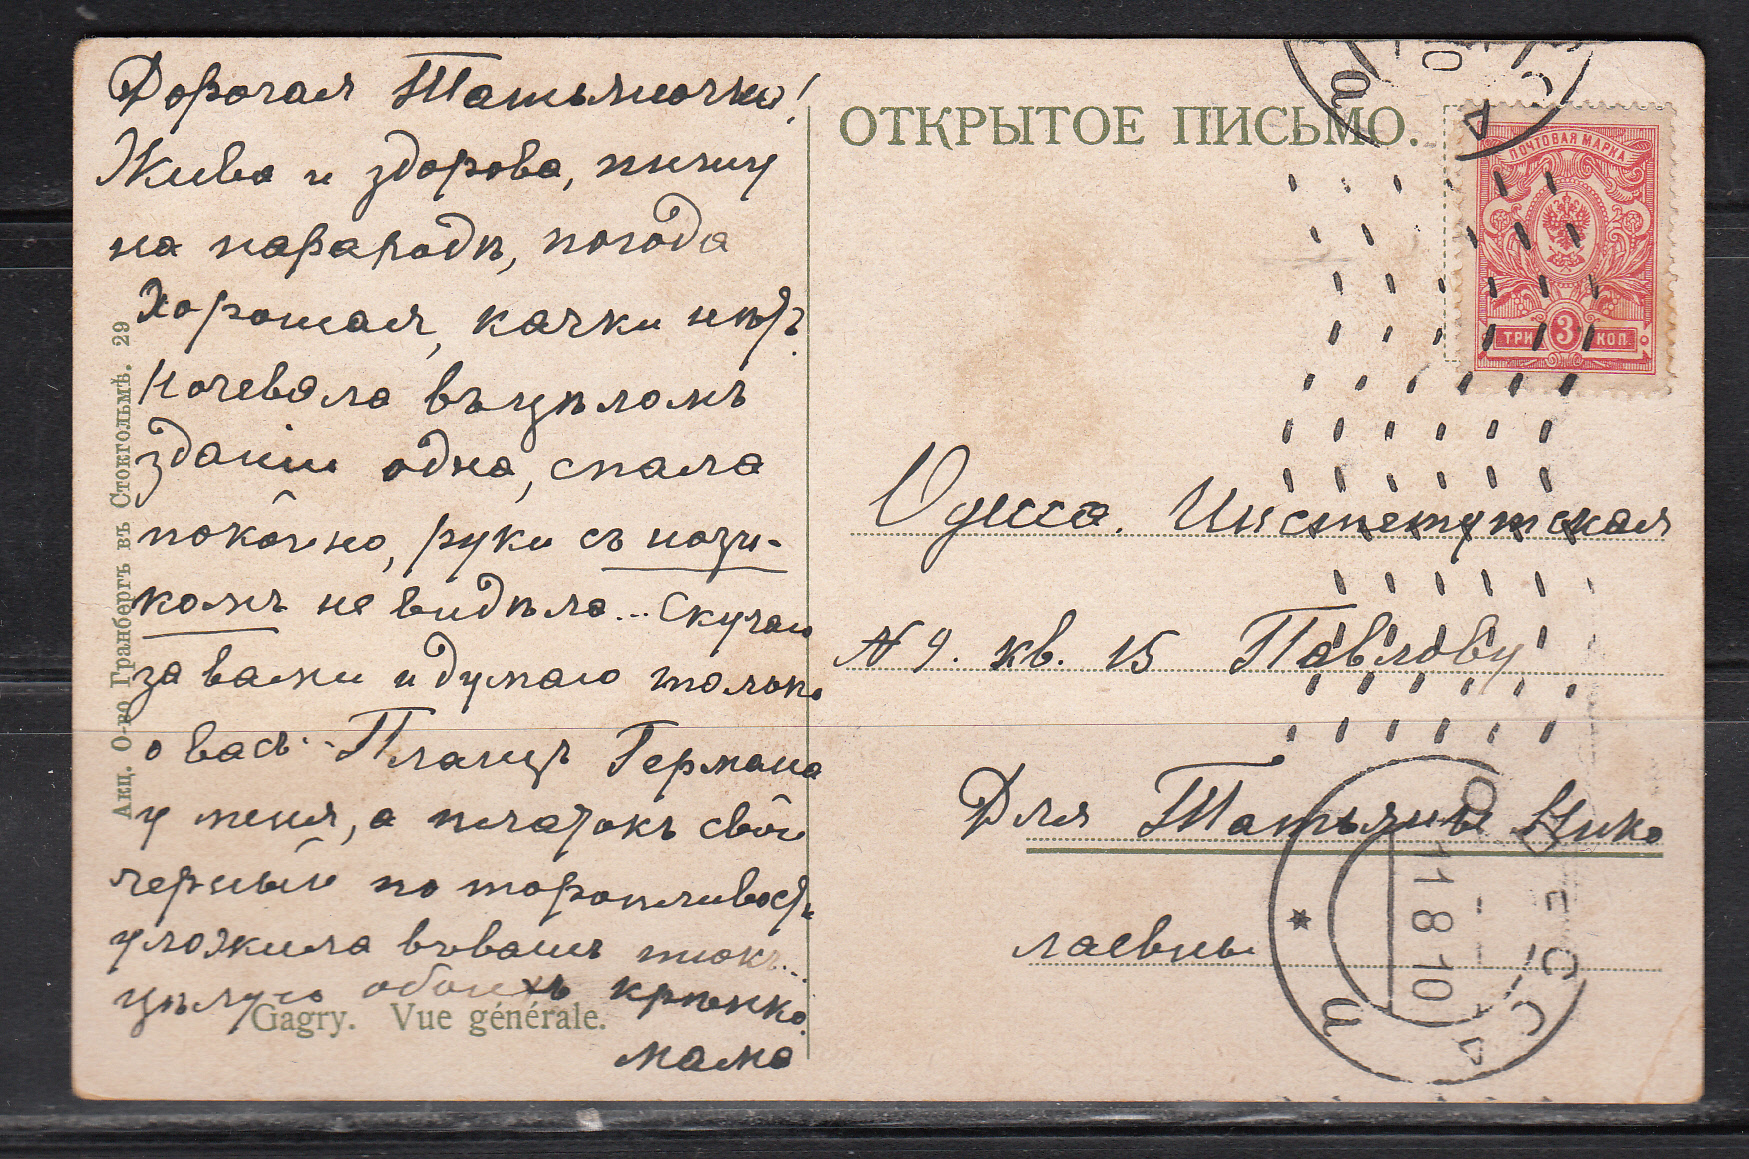 Дорогая Татьяночка!
Жива и здорова, пишу
на параходѣ, погода
хорошая, качки нѣтъ.
Ночевала въ цѣломъ
зданіи одна, спала
покойно, руки съ ножи-
комъ не видѣла... Скучаю
за вами и думаю только
о васъ. Планъ Германа
у меня, а платокъ свой
черный по торопливости
уложила въ вашъ тюкъ...
цѣлую обоихъ крѣпко.
мама
Gagry. Vue générale.
Акц. О-во Гранбергъ въ Стокгольмѣ. 29
ОТКРЫТОЕ ПИСЬМО.
ПОЧТОВАЯ МАРКА
ТРИ 3 КОП.
Одесса. Институтская
№ 9. кв. 15 Павлову
Для Татьяны Нико
лаевны
ОДЕССА
11 8 10